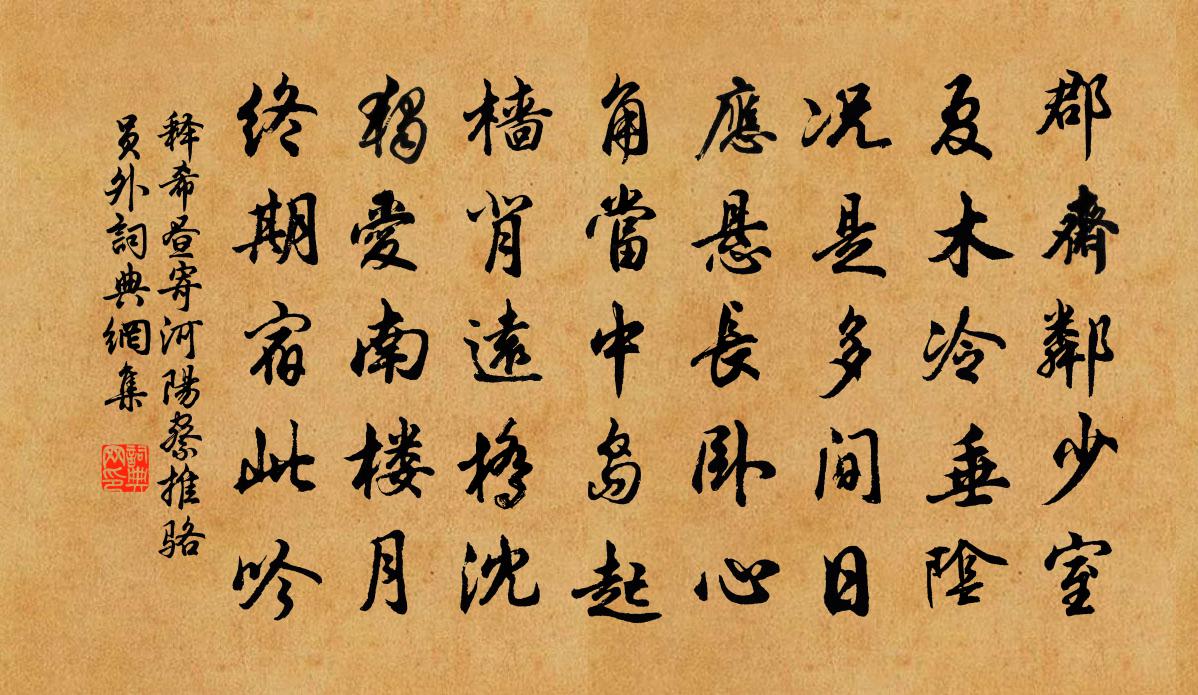 郡齋鄰少室
夏木冷垂陰
况是多间日
應悬長卧心
角當中島起
檣背遠橋沈
獨愛南楼月
终期宿此吟
释希昼寄河陽察推骆
员外詞典網集
詞典网印